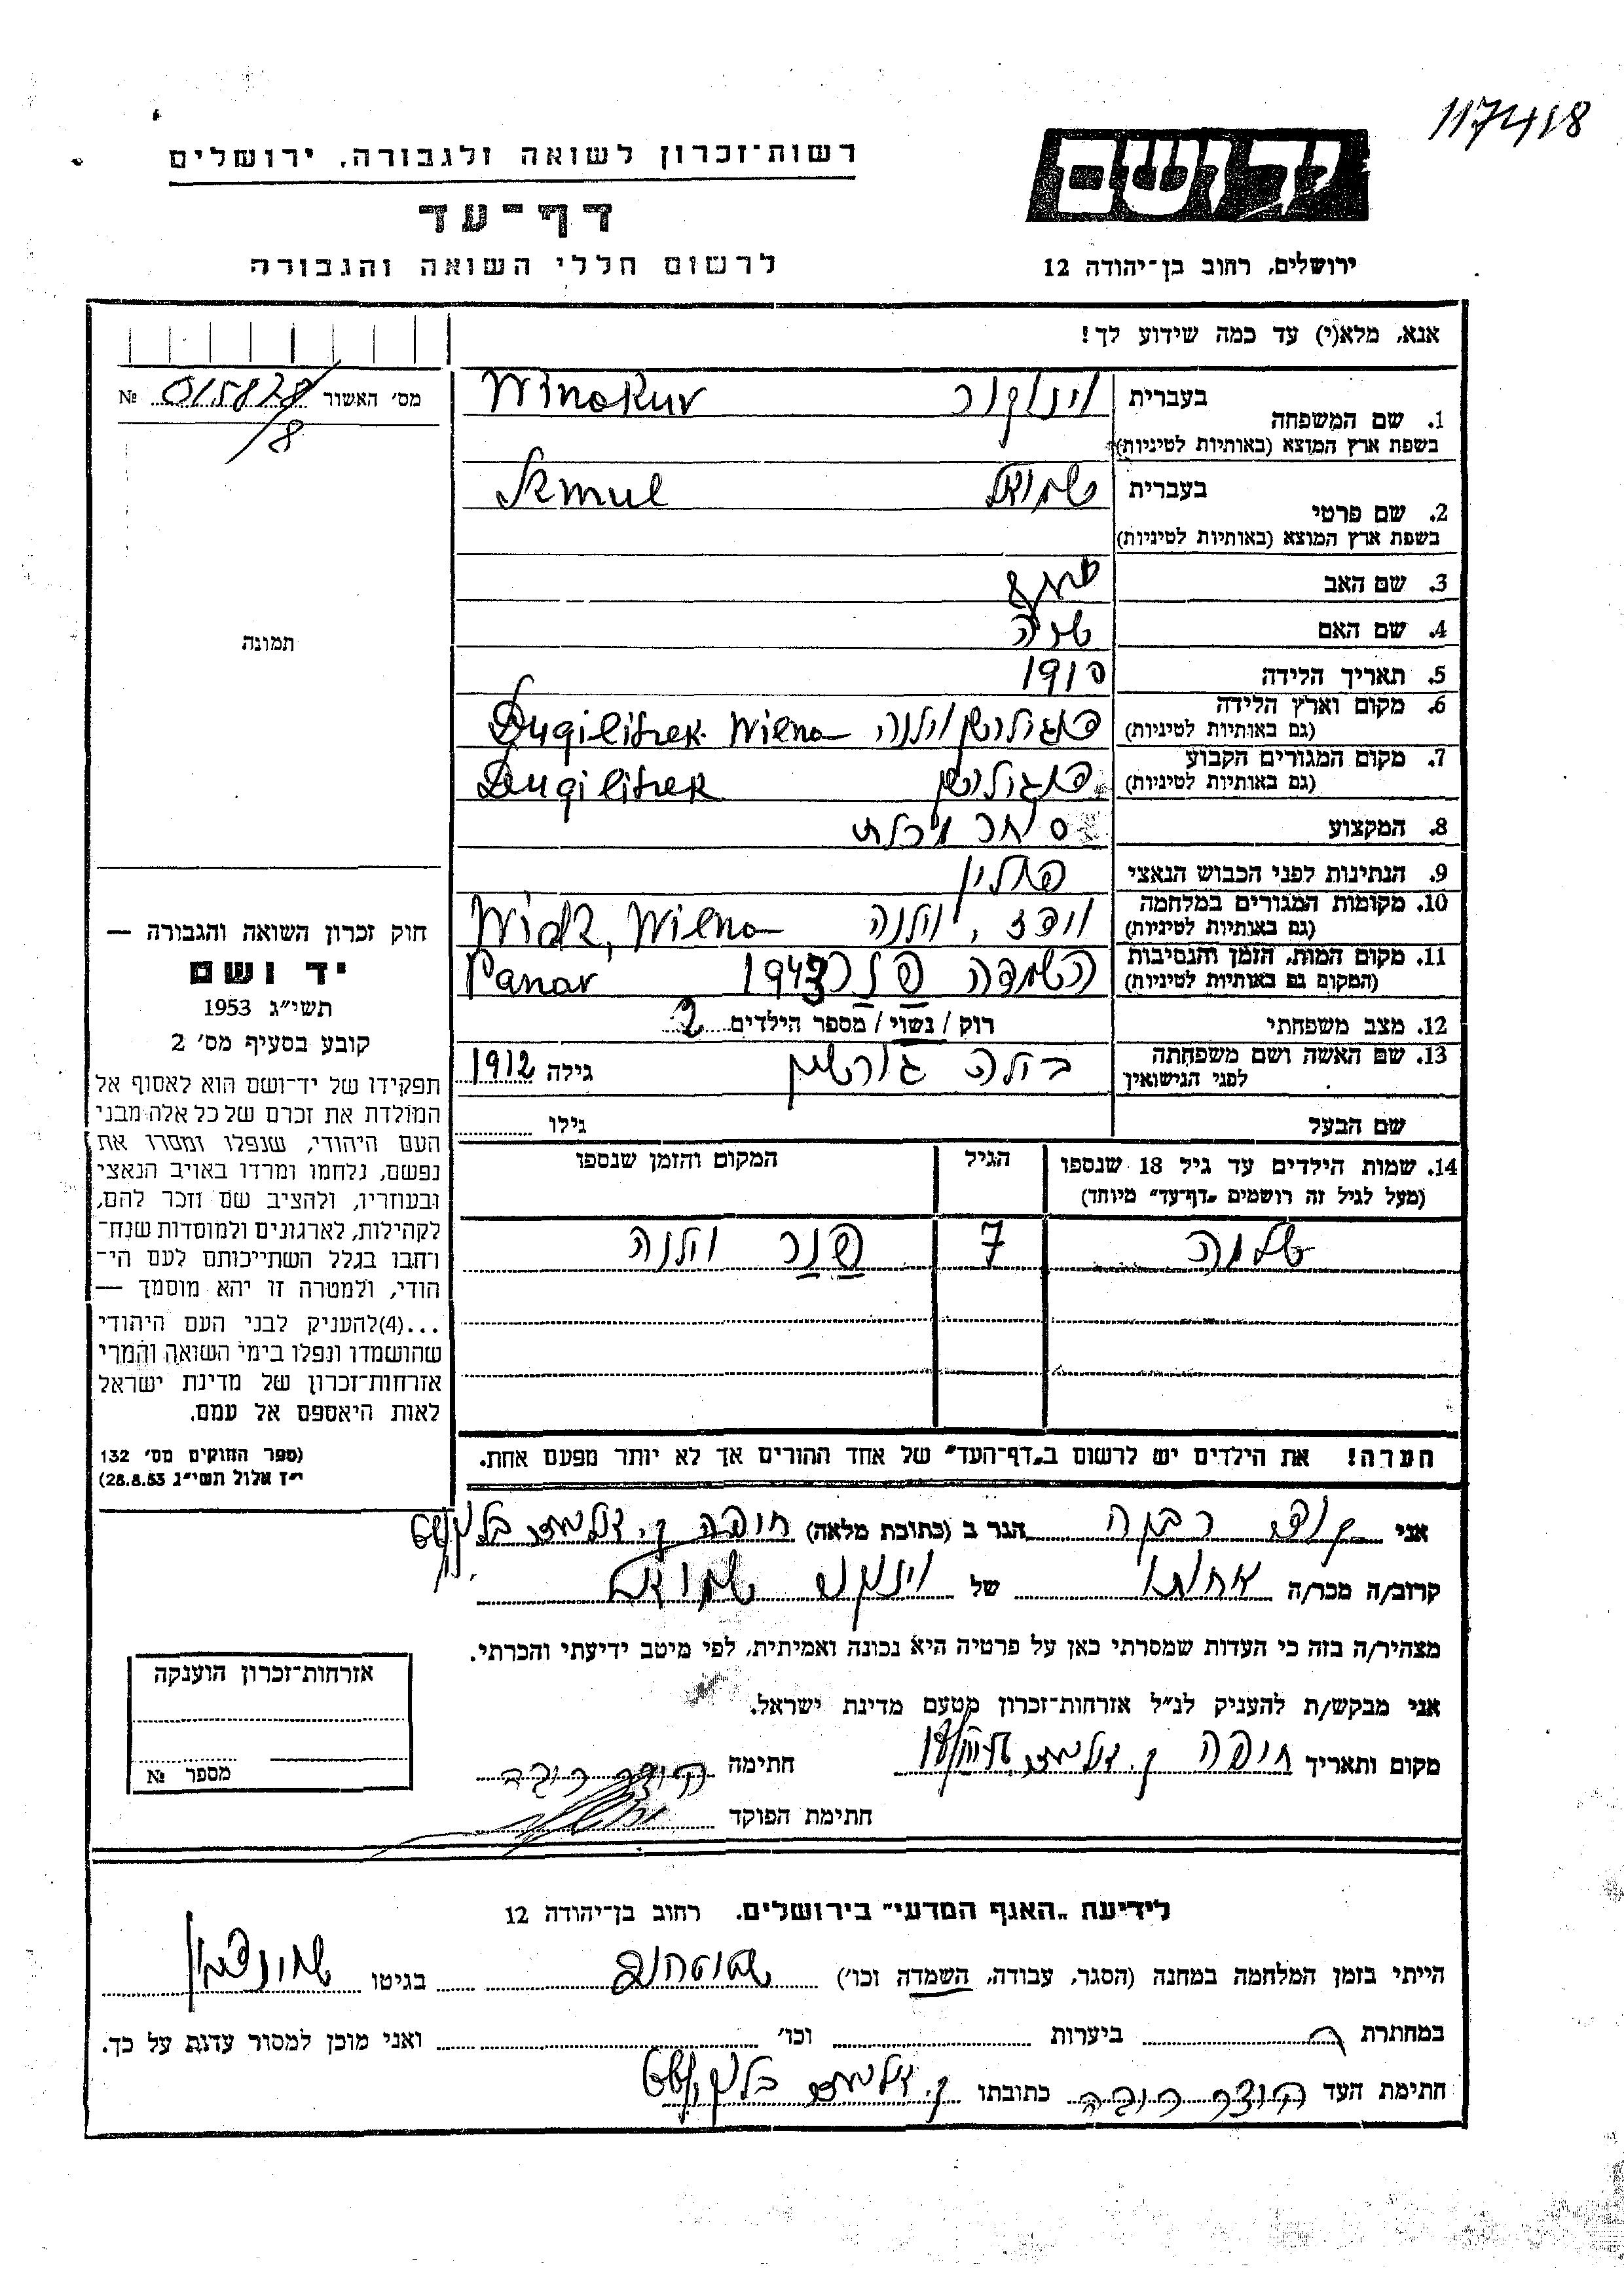 1174118
רשות-זכרון לשואה ולגבורה, ירושלים
יד ושם
דף-עד
לרשום חללי השואה והגבורה
ירושלים, רחוב בן-יהודה 12
אנא, מלא(י) עד כמה שידוע לך!
מס׳ האשור 015828/8 №
תמונה
1. שם המשפחה בעברית וינוקור
בשפת ארץ המוצא (באותיות לטיניות) Winokur
2. שם פרטי בעברית שמואל
בשפת ארץ המוצא (באותיות לטיניות) Szmul
3. שם האב
4. שם האם
5. תאריך הלידה 1910
6. מקום וארץ הלידה
(גם באותיות לטיניות) וילנה Dugiliszek Wilno
7. מקום המגורים הקבוע
(גם באותיות לטיניות) Dugiliszek
8. המקצוע סוחר
9. הנתינות לפני הכבוש הנאצי פולין
10. מקומות המגורים במלחמה
(גם באותיות לטיניות) וידז, וילנה Widz, Wilno
11. מקום המות, הזמן והנסיבות
(המקום גם באותיות לטיניות) השמדה פנר 1943 Panar
12. מצב משפחתי רוק / נשוי / מספר הילדים 2
13. שם האשה ושם משפחתה
לפני הנישואין בילה גורשין גילה 1912
שם הבעל גילו
14. שמות הילדים עד גיל 18 שנספו הגיל המקום והזמן שנספו
(מעל לגיל זה רושמים "דף-עד" מיוחד)
שלמה 7 פנר וילנה
חוק זכרון השואה והגבורה —
יד ושם
תשי״ג 1953
קובע בסעיף מס׳ 2
תפקידו של יד-ושם הוא לאסוף אל
המולדת את זכרם של כל אלה מבני
העם היהודי, שנפלו ומסרו את
נפשם, נלחמו ומרדו באויב הנאצי
ובעוזריו, ולהציב שם וזכר להם,
לקהילות, לארגונים ולמוסדות שנח-
רבו בגלל השתייכותם לעם הי-
הודי, ולמטרה זו יהא מוסמך —
...(4)להעניק לבני העם היהודי
שהושמדו ונפלו בימי השואה והמרי
אזרחות-זכרון של מדינת ישראל
לאות היאספם אל עמם.
(ספר החוקים מס׳ 132
י״ז אלול תשי״ג 28.8.53)
הערה! את הילדים יש לרשום ב"דף-העד" של אחד ההורים אך לא יותר מפעם אחת.
אני הגר ב (כתובת מלאה) חיפה ק.
קרוב/ה מכר/ה אחותו של וינוקור שמואל
מצהיר/ה בזה כי העדות שמסרתי כאן על פרטיה היא נכונה ואמיתית, לפי מיטב ידיעתי והכרתי.
אני מבקש/ת להעניק לנ״ל אזרחות-זכרון מטעם מדינת ישראל.
מקום ותאריך חיפה ק. חתימה
חתימת הפוקד
אזרחות-זכרון הוענקה
מספר №
לידיעת "האגף המדעי" בירושלים. רחוב בן-יהודה 12
הייתי בזמן המלחמה במחנה (הסגר, עבודה, השמדה וכו׳) שטוטהוף בגיטו
במחתרת ביערות וכו׳ ואני מוכן למסור עדות על כך.
חתימת העד כתובתו ק.